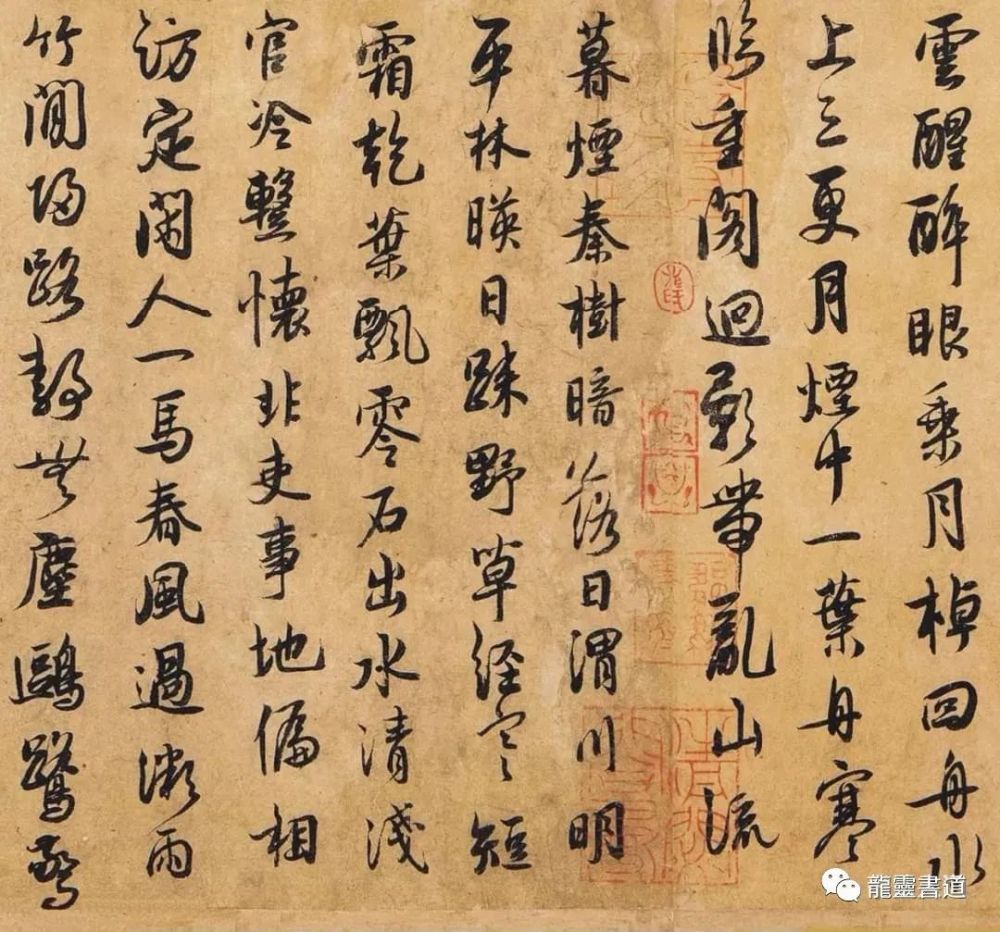 雲醒醉眼乘月棹回舟水
上三更月煙中一葉舟寒
臨重閣迥影帶亂山流
暮煙秦樹暗落日渭川明
平林暎日踈野草経寒短
霜乾葉飄零石出水清淺
官冷整懷非吏事地偏相
訪定閑人一馬春風過微雨
竹間歸路静無塵鷗鷺驚
龍靈書道